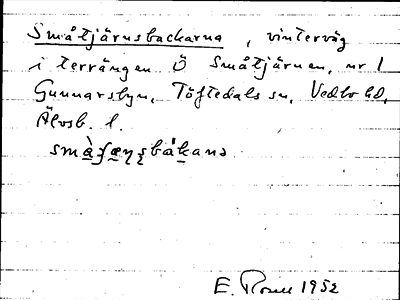 Småtjärnsbackarna, vinterväg
i terrängen Ö Småtjärnen, nr 1
Gunnarsbyn, Töftedals sn, Vedbo hd,
Älvsb. l.
E. 1952